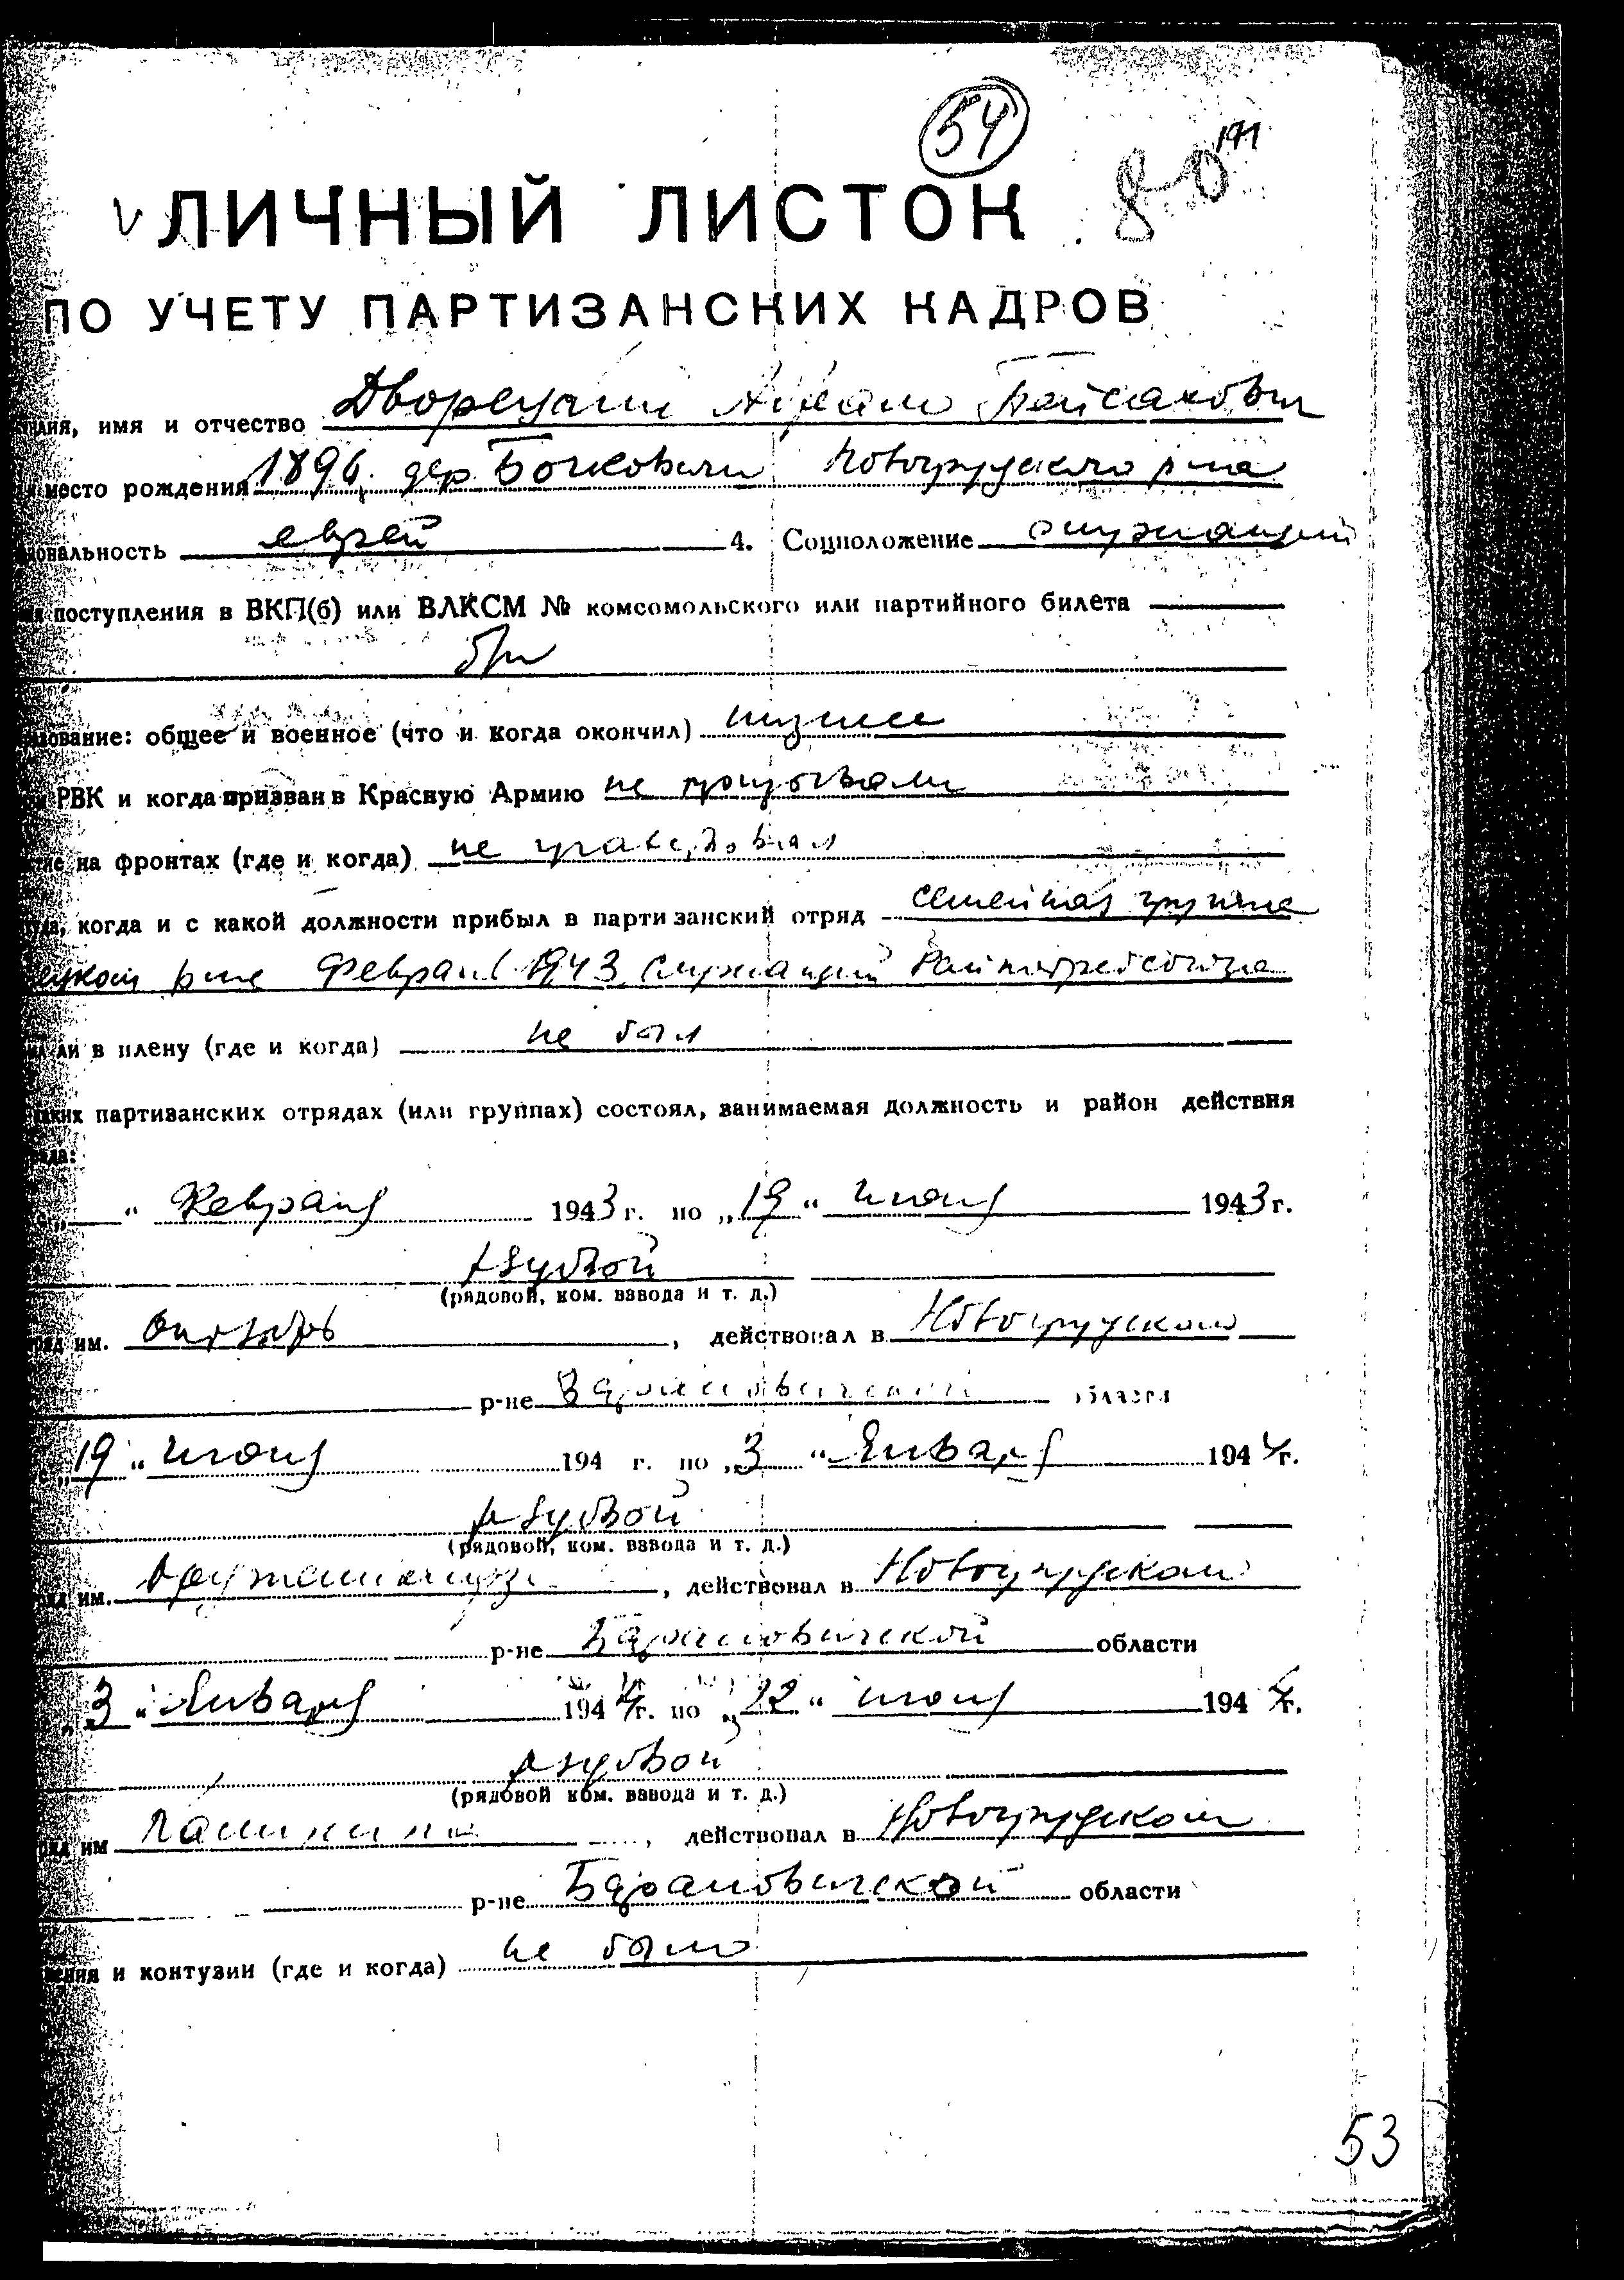 54
171
80
ЛИЧНЫЙ ЛИСТОК
ПО УЧЕТУ ПАРТИЗАНСКИХ КАДРОВ
имя и отчество Дворецкий
место рождения 1896 дер. Бочковичи Новогрудского р-на
еврей 4. Соцположение служащий
поступления в ВКП(б) или ВЛКСМ № комсомольского или партийного билета
б/п
общее и военное (что и когда окончил) низшее
РВК и когда призван в Красную Армию не призывали
на фронтах (где и когда) не участвовал
когда и с какой должности прибыл в партизанский отряд семейная группа
р-не Февраль 1943 служащий Райпотребсоюза
ли в плену (где и когда) не был
партизанских отрядах (или группах) состоял, занимаемая должность и район действия
" Февраля 1943 г. по „19" июня 1943 г.
рядовой
(рядовой, ком. взвода и т. д.)
им. Октябрь, действовал в Новогрудском
р-не Барановичской области
19" июня 194 г. по „3" Января 1944 г.
рядовой
(рядовой, ком. взвода и т. д.)
им. Орджоникидзе, действовал в Новогрудском
р-не Барановичской области
„3" Января 1944 г. по „22" июня 1944 г.
рядовой
(рядовой ком. взвода и т. д.)
им Калинина, действовал в Новогрудском
р-не Барановичской области
и контузии (где и когда) не было
53